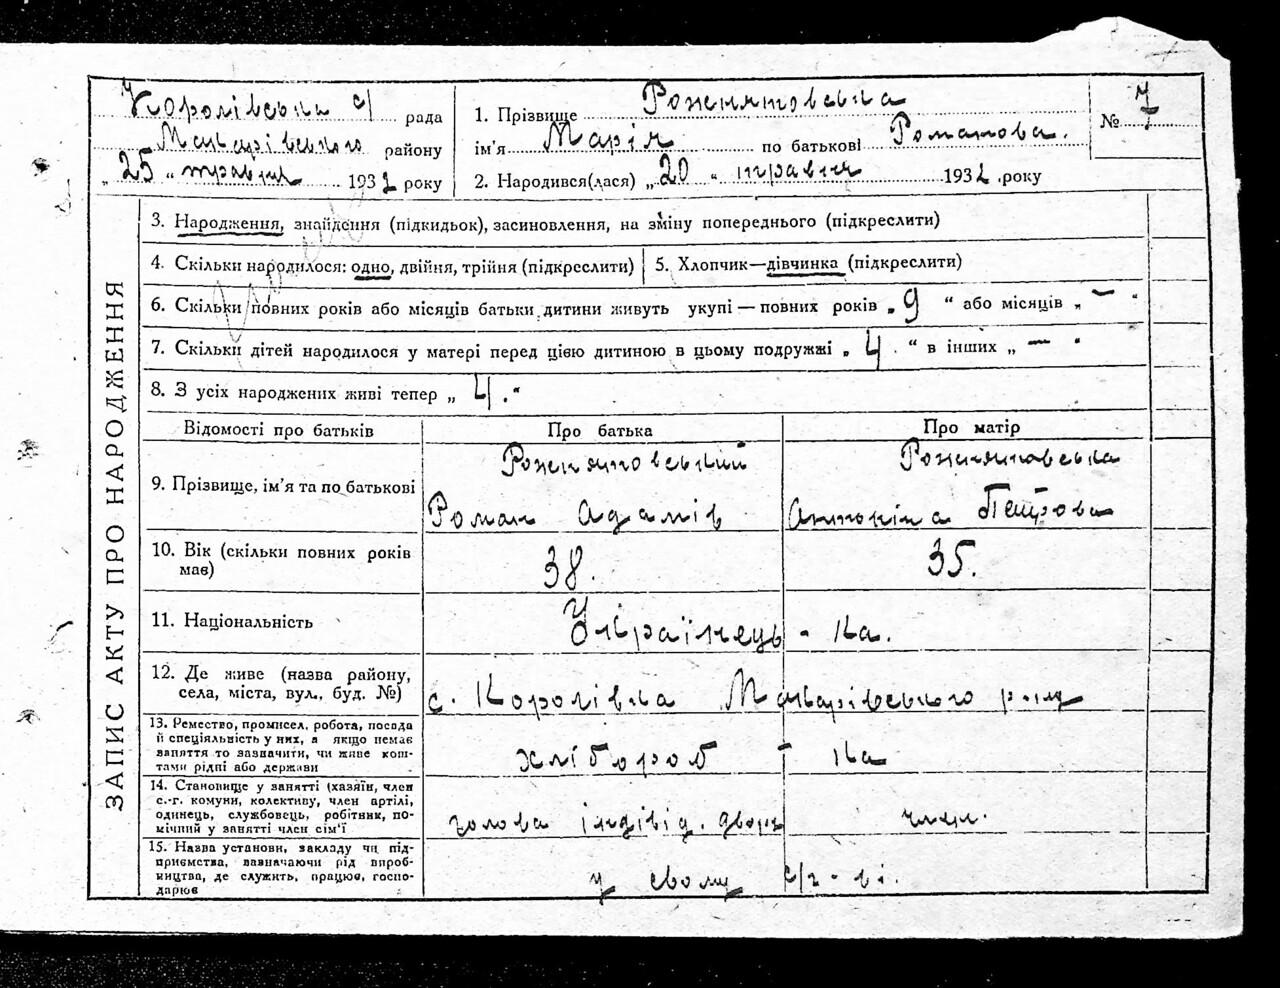 Королівська с/ рада
Макарівського району
„ 25 “ травня 1932 року
1. Прізвище Рожнятовська
ім'я Марія по батькові Романова.
2. Народився(лася) „ 20 “ травня 1932 року
№ 7
ЗАПИС АКТУ ПРО НАРОДЖЕННЯ
3. Народження, знайдення (підкидьок), засиновлення, на зміну попереднього (підкреслити)
4. Скільки народилося: одно, двійня, трійня (підкреслити)
5. Хлопчик—дівчинка (підкреслити)
6. Скільки повних років або місяців батьки дитини живуть укупі — повних років „ 9 “ або місяців „ — “
7. Скільки дітей народилося у матері перед цією дитиною в цьому подружжі „ 4 . “ в інших „ — “
8. З усіх народжених живі тепер „ 4 . “
Відомості про батьків
Про батька
Про матір
9. Прізвище, ім'я та по батькові
Рожнятовський
Роман Адамів
Рожнятовська
Антоніна Петрова
10. Вік (скільки повних років
має)
38.
35.
11. Національність
Українець - ка.
12. Де живе (назва району,
села, міста, вул., буд. №)
с. Королівка Макарівського р-ну
13. Ремество, промисел, робота, посада
й спеціяльність у них, а якщо немає
заняття то зазначити, чи живе кош-
тами рідні або держави
хлібороб - ка
14. Становище у занятті (хазяїн, член
с.-г. комуни, колективу, член артілі,
одинець, службовець, робітник, по-
мічний у занятті член сім'ї
голова індівід. двору
член.
15. Назва установи, закладу чи під-
приємства, вазначаючи рід вироб-
ництва, де служить, працює, госпо-
дарює
у свому с/г-ві.